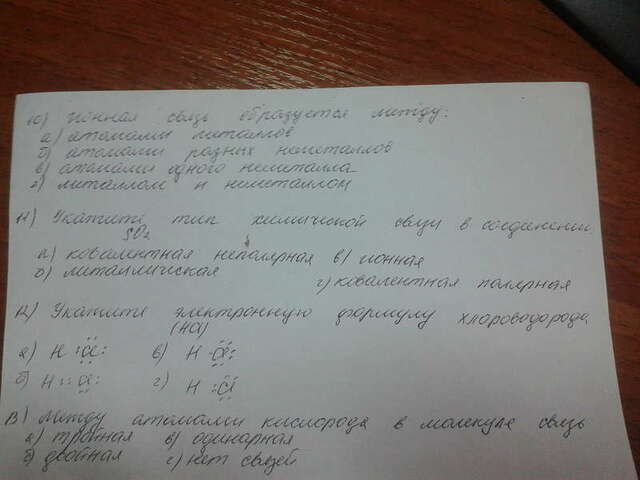 10) Ионная связь образуется между:
а) атомами металлов
б) атомами разных неметаллов
в) атомами одного неметалла
г) металлом и неметаллом
11) Укажите тип химической связи в соединении
SO₂
а) ковалентная неполярная в) ионная
б) металлическая г) ковалентная полярная
12) Укажите электронную формулу хлороводорода
(HCl)
а) H :Cl: в) H :Cl:
б) H ::Cl: г) H :Cl
13) Между атомами кислорода в молекуле связь
а) тройная в) одинарная
б) двойная г) нет связей